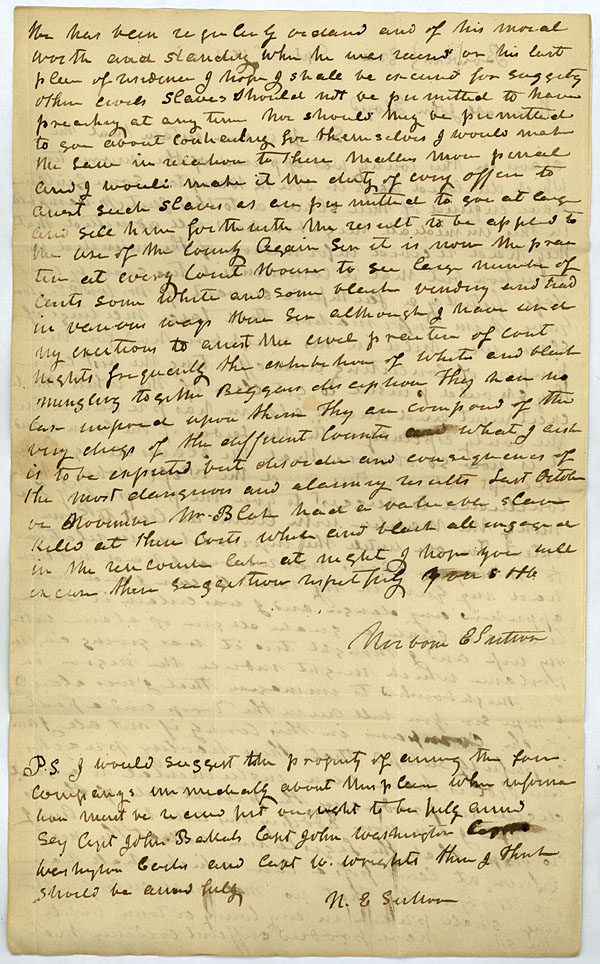 He has been regularly ordand and of his moral
worth and standing when he was raised or his last
place of residence I hope I shall be excused for suggesting
other evils Slaves should not be permitted to have
preaching at any time Nor should they be permitted
to goe about contracting for themselves I would make
the Laws in relation to these matters more penal
and I would make it the duty of evry officer to
arrest such slaves as are permitted to goe at large
and sell them forthwith the result to be applied to
the use of the County Again Sir it is now the prac
tice at evry Court House to see large number of
Carts some white and some black vending and trad
in various ways there Sir although I have used
my exertions to arrest the evil practice of Court
nights frequently the exhibition of white and black
mingling together Beggars discription They have no
Law imposed upon them They are composed of the
very dregs of the different Counties what I ask
is to be expected but disorder and consequences of
the most dangerous and alarming results Last October
or November Mr Blak had a valuable slave
killed at these Carts white and black all engaged
in the rencounter late at night I hope you will
excuse these suggestions respetfuly yours &c
Norborne E Sutton
P.S. I would suggest the propriety of arming the four
companys immediatly about this place when informa
tion must be recived yet ought to be fuly armed
Say Capt John Bakers Capt John Washington
Washington Cocks and Capt W. Wrights these I think
should be armed fuly
N. E Sutton